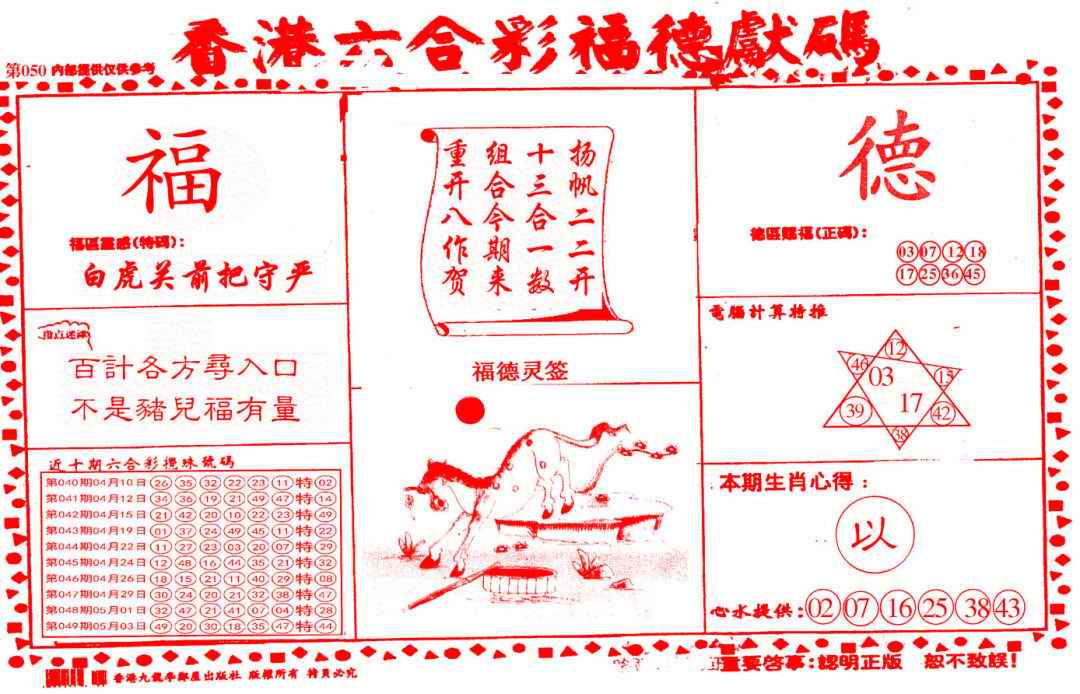 香港六合彩福德獻碼
第050 内部提供仅供参考
福
福區靈感(特碼):
白虎关前把守严
指点迷津
百計各方尋入口
不是豬兒福有量
近十期六合彩攪珠號碼
第040期04月10日 26 35 32 22 23 11 特 02
第041期04月12日 34 36 19 21 49 47 特 14
第042期04月15日 21 42 20 10 22 23 特 49
第043期04月19日 01 37 24 49 45 11 特 22
第044期04月22日 11 27 23 03 20 07 特 29
第045期04月24日 12 48 16 44 35 21 特 32
第046期04月26日 18 15 21 11 40 29 特 08
第047期04月29日 30 24 20 21 32 38 特 47
第048期05月01日 32 47 21 41 07 04 特 28
第049期05月03日 49 20 30 18 35 47 特 44
扬帆二二开
十三合一数
组合今期来
重开八作贺
福德灵签
德
德區賜福(正碼):
03 07 12 18
17 25 36 45
電腦計算特推
12
46 03 15
39 17 42
38
本期生肖心得:
以
心水提供: 02 07 16 25 38 43
香港九龍學鄰屋出版社 版權所有 特員必究
重要啓事:認明正版 恕不致誤!